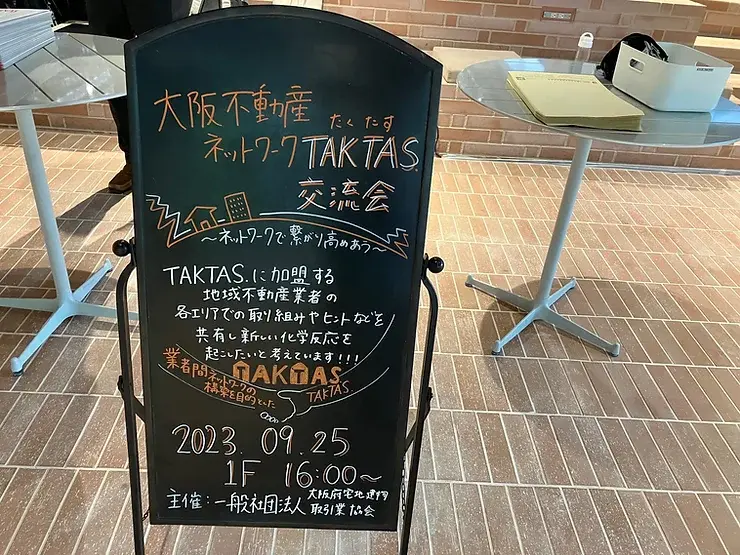 大阪不動産
たくたす
ネットワークTAKTAS.
交流会
〜ネットワークで繋がり高めあう〜
TAKTAS.に加盟する
地域不動産業者の
各エリアでの取り組みやヒントなどを
共有し新しい化学反応を
起こしたいと考えています!!!
業者間ネットワークの
構築を目的とした
TAKTAS
TAKTAS.
2023.09.25
1F 16:00〜
主催:一般社団法人
大阪府宅地建物
取引業協会